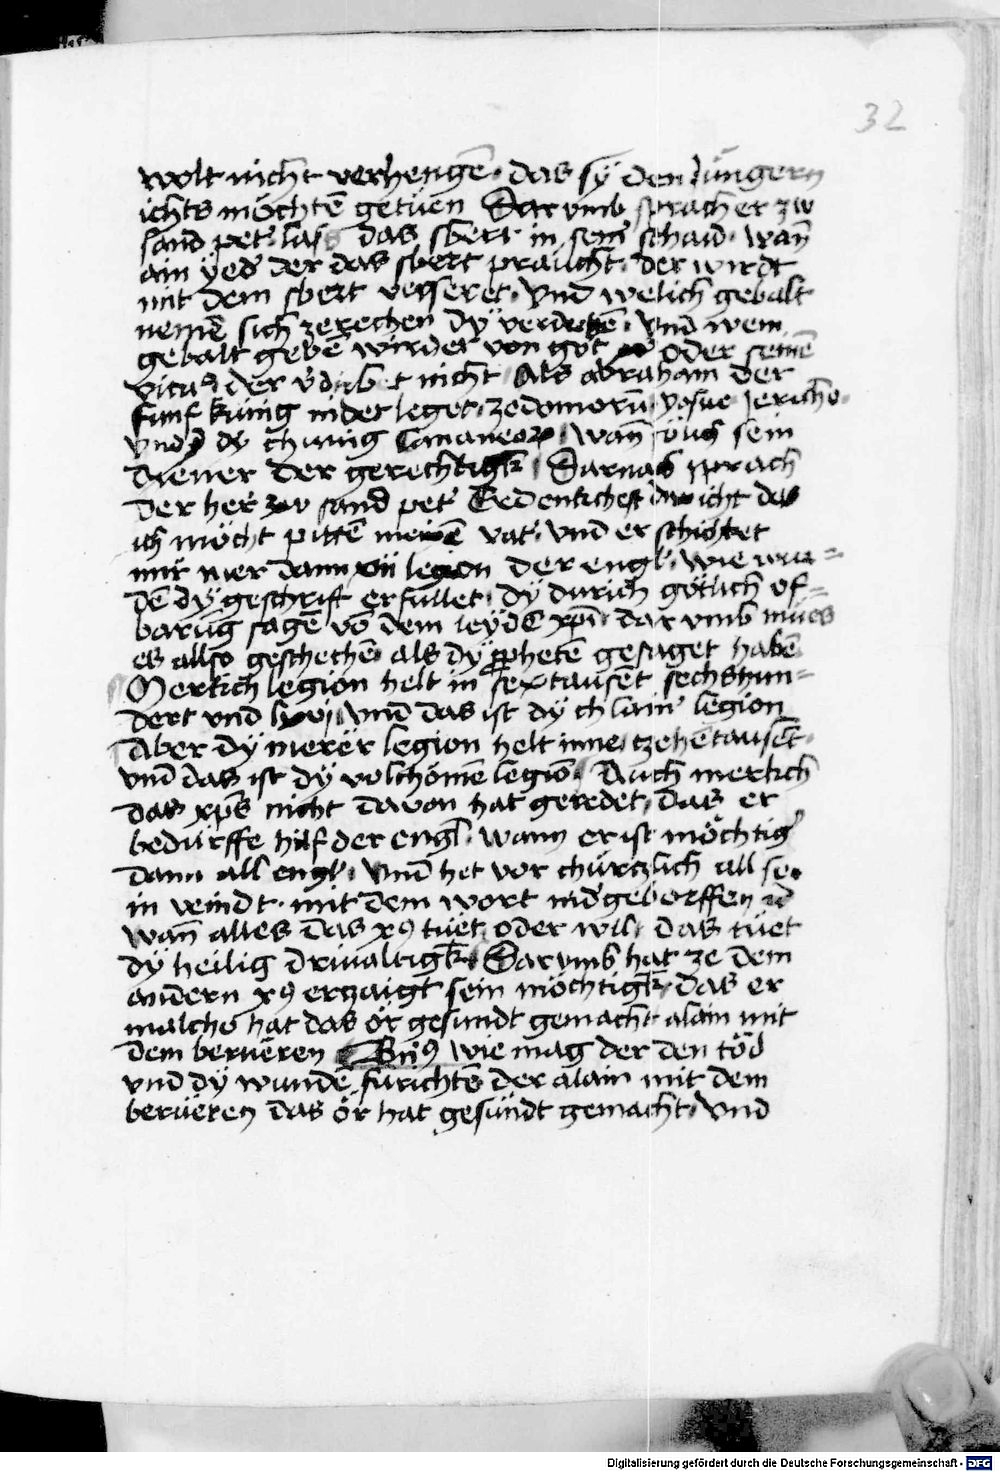 32
wolt nicht verhengē · das sÿ den Jüngern
ichts möchtē getüen Darvmb sprach er zw
sand pet' las das sbert in sein schaid · wañ
ain ÿed' der das sbert praücht · der wirdt
mit dem sbert verseret · Vnd welich gebalt
nemē sich zerechen dÿ · Vnd wem
gebalt gebē wirdet von got oder seinē
der nicht Als abraham der
fünf künig nider leget · yosue Jericho ·
vnd dy chünig Cananeoꝝ · wañ sein
diener der gerechtigk̄ Darnach sprach
der her zw sand pet' Gedenkchest dw nicht das
ich möcht pittē meinē vat' · vnd er schicket
mir mer dann xii legion der engl' · wie wur=
dē dÿ geschrift erfullet · dÿ durich götlich of=
barūg sagē vō dem leÿdē xp̄i · darvmb mües
es allso geschechē als dÿ ꝓphetē gesaget habē
Merkch legion helt in sextausēt sechshun=
dert vnd lxvi · vnd das ist dÿ chlain' legion
Aber dÿ merër legion helt inne tzehētausēt ·
vnd das ist dÿ volchömē legiō · Auch merkch
das xp̄s nicht davon hat geredet · das er
bedürffe hilf der engl' · wann er ist möchtig'
dann all engl' · Vnd het vor chürtzlich all se
in veindt · mit dem wort nid'geborffen
wañ alles das x9 tüet oder wil · das tüet
dÿ heilig drivaltigk̄ · Darvmb hat ze dem
andern x9 ertzaigt sein möchtigk̄ · das er
malcho hat das ör gesundt gemacht alain mit
dem berüëren wie mag der den töd
vnd dÿ wundē fürichtē der alain mit dem
berüeren das ör hat gesündt gemacht · Vnd
Digitalisierung gefördert durch die Deutsche Forschungsgemeinschaft - DFG